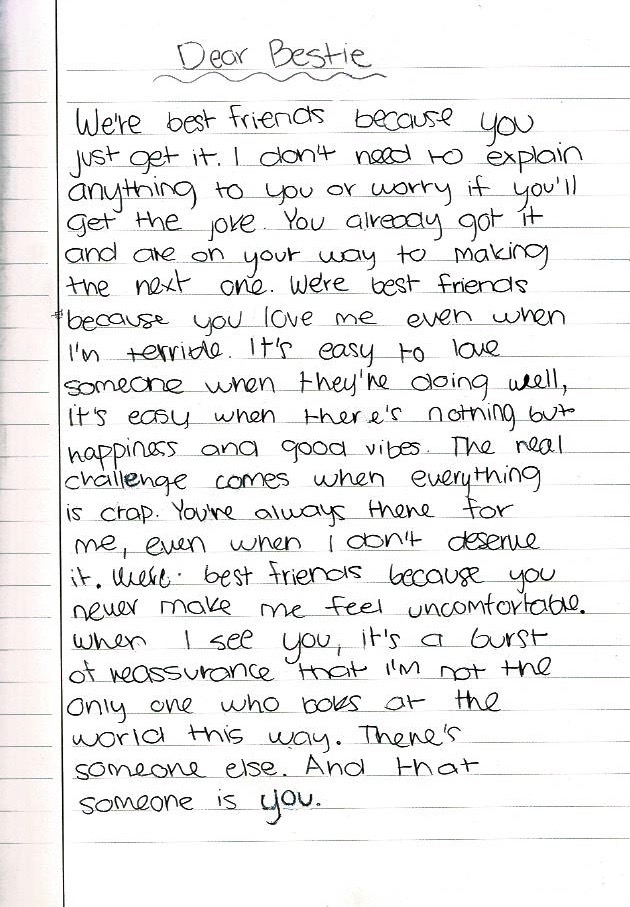 Dear Bestie
We're best friends because you
just get it. I don't need to explain
anything to you or worry if you'll
get the joke. You already got it
and are on your way to making
the next one. We're best friends
because you love me even when
I'm terrible. It's easy to love
someone when they're doing well,
it's easy when there's nothing but
happiness and good vibes. The real
challenge comes when everything
is crap. You're always there for
me, even when I don't deserve
it. We're best friends because you
never make me feel uncomfortable.
When I see you, it's a burst
of reassurance that I'm not the
only one who looks at the
world this way. There's
someone else. And that
someone is you.